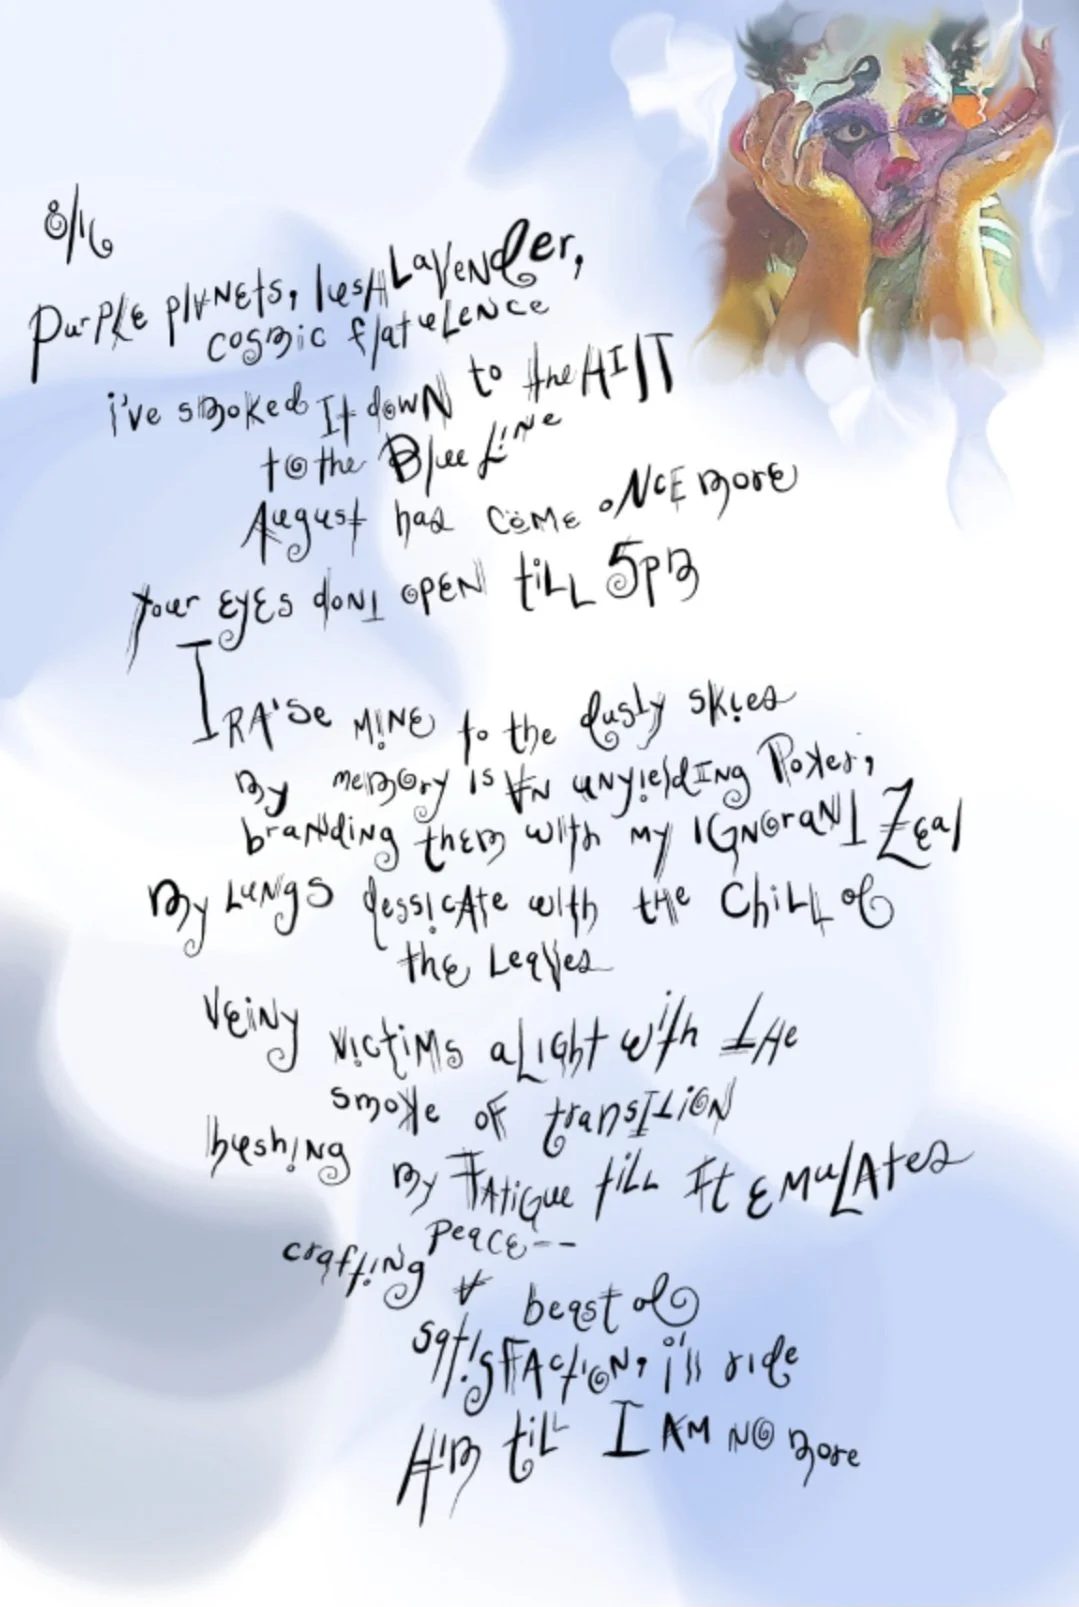 8/16
Purple planets, lush Lavender,
cosmic flatulence
i've smoked It down to the HILT
to the Blue Line
August has come once more
your eyes dont open till 5pm
I raise mine to the dusty skies
my memory is an unyielding Poker,
branding them with my ignorant Zeal
My lungs dessicate with the Chill of
the Leaves
Veiny victims alight with the
smoke of transition
hushing my Fatigue till It emulates
peace--
crafting a beast of
satisfaction, i'll ride
Him till I AM no more